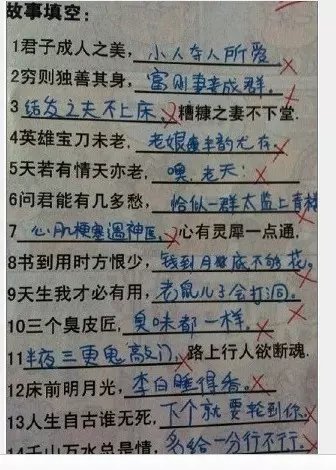 故事填空：
1君子成人之美，小人夺人所爱
2穷则独善其身，富则妻妾成群。
3结发之夫不上床，糟糠之妻不下堂.
4英雄宝刀未老，老娘丰韵尤存。
5天若有情天亦老，嘿，老天：
6问君能有几多愁，恰似一群太监上青楼
7心肌梗塞遇神医，心有灵犀一点通，
8书到用时方恨少，钱到月底不够花。
9天生我才必有用，老鼠儿子会打洞。
10三个臭皮匠，臭味都一样。
11半夜三更鬼敲门，路上行人欲断魂.
12床前明月光，李白睡得香。
13人生自古谁无死，下个就要轮到你.
14千山万水总是情，多给一分行不行.